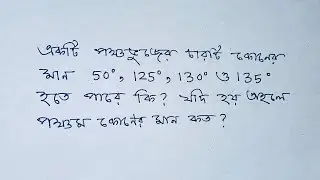 একটি পঞ্চভুজের চারটি কোনের
মান 50°, 125°, 130° ও 135°
হতে পারে কি? যদি হয় তাহলে
পঞ্চম কোনের মান কত?